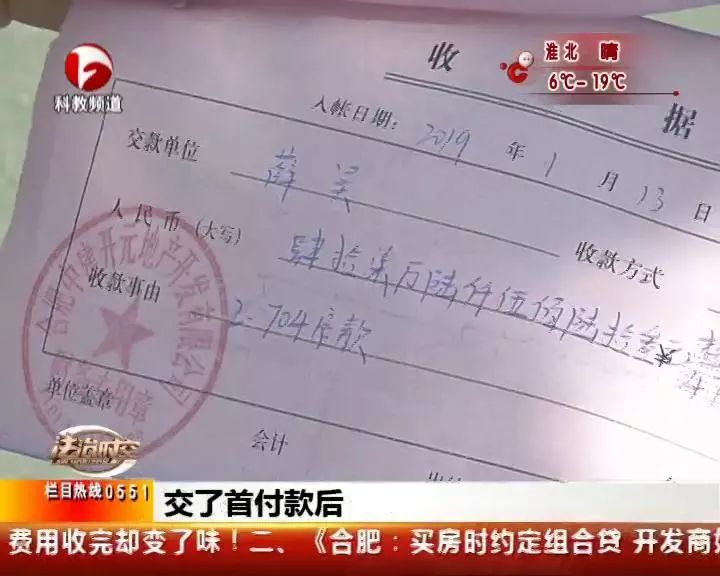 科教频道
淮北 晴
6℃-19℃
收 据
入帐日期: 2019 年 1 月 13 日
交款单位 薛昊
人民币(大写) 肆拾柒万陆仟伍佰陆拾
收款方式
收款事由 2-704房款
合肥中唐开元地产开发有限公司
财务专用章
单位盖章
会计
法治时空
栏目热线0551
交了首付款后
费用收完却变了味!二、《合肥:买房时约定组合贷 开发商